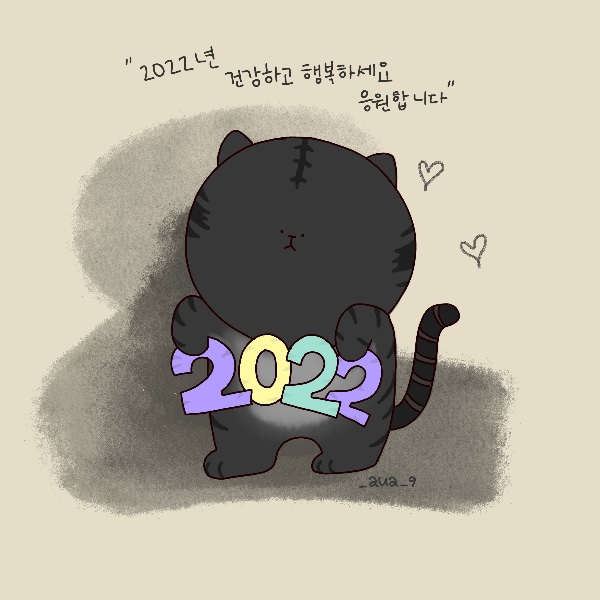 "2022년
건강하고 행복하세요
응원합니다"
2022
_aua_9